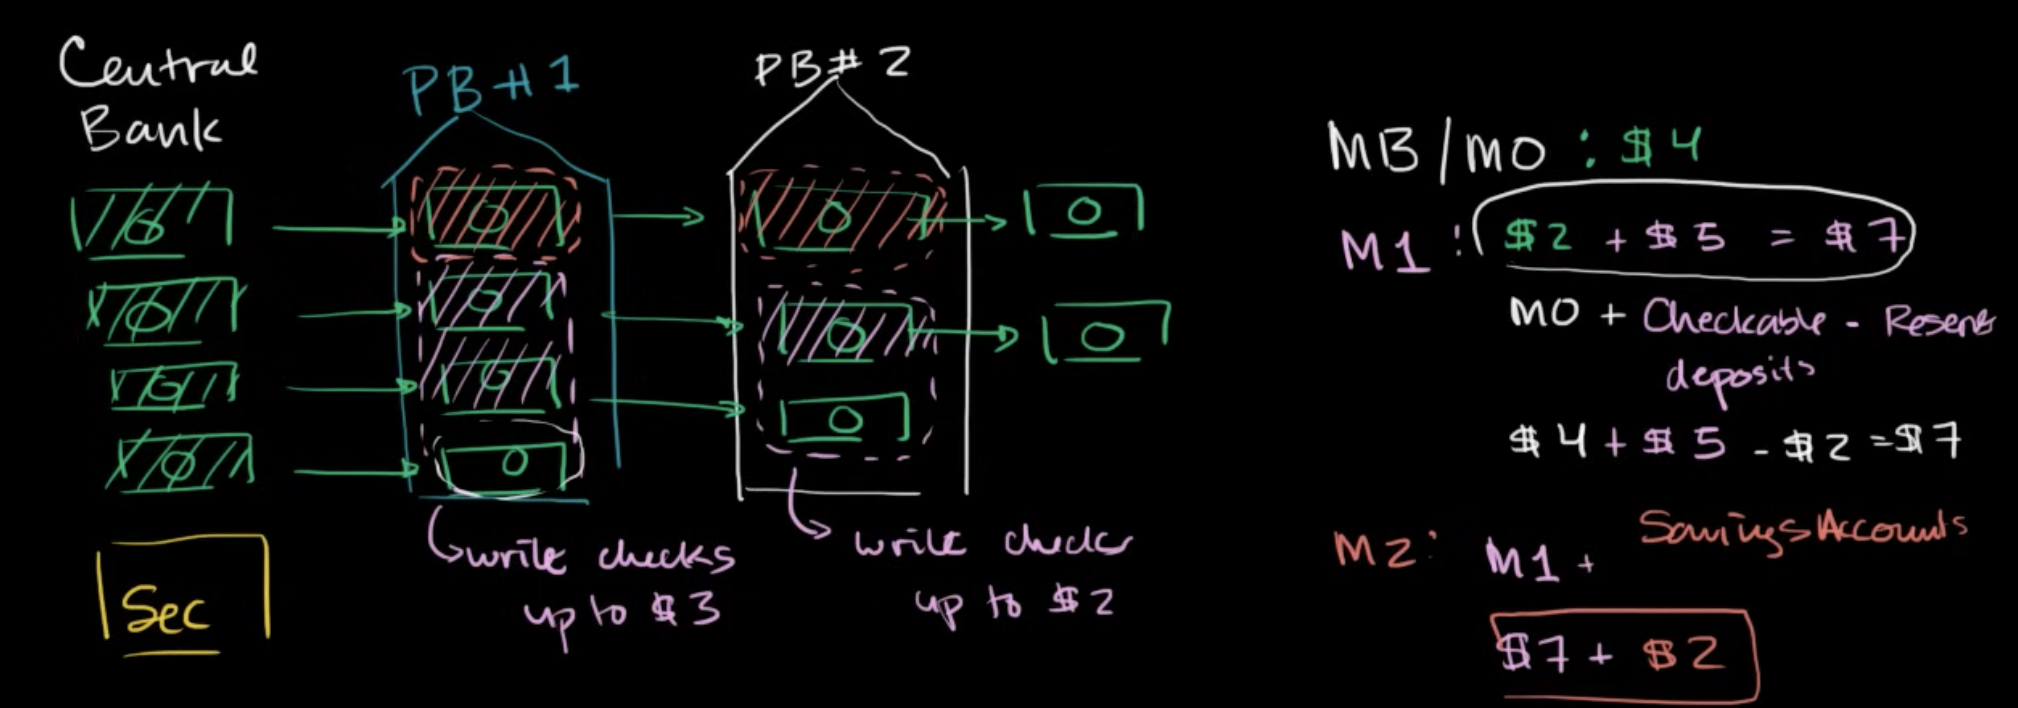 Central
Bank
PB#1
PB#2
Sec
write checks
up to $3
write checks
up to $2
MB/M0 : $4
M1 : $2 + $5 = $7
M0 + Checkable - Reserves
deposits
$4 + $5 - $2 = $7
M2: M1 + Savings Accounts
$7 + $2